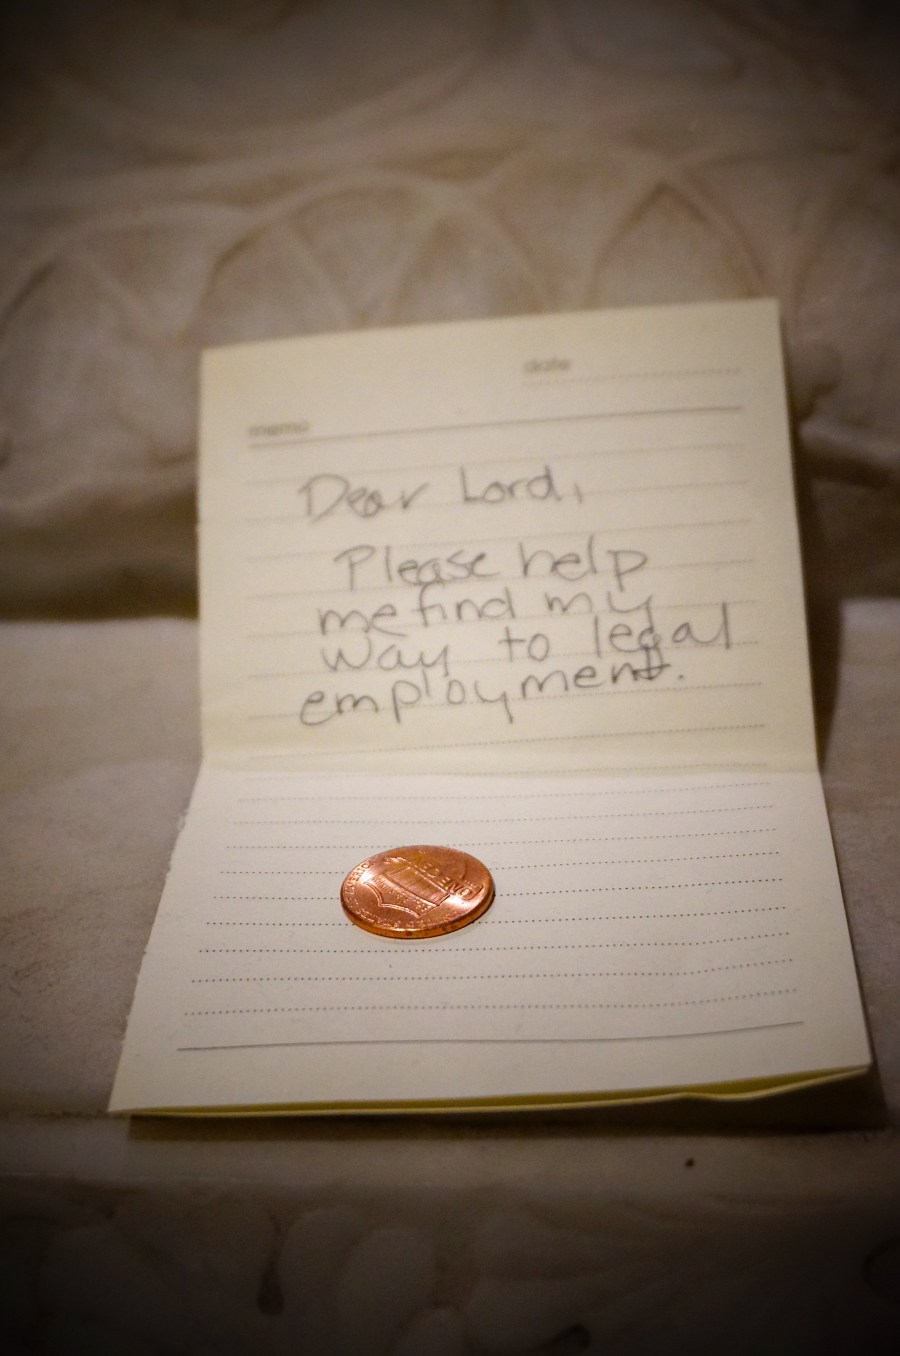 date
memo
Dear Lord,
Please help
me find my
way to legal
employment.
ONE CENT